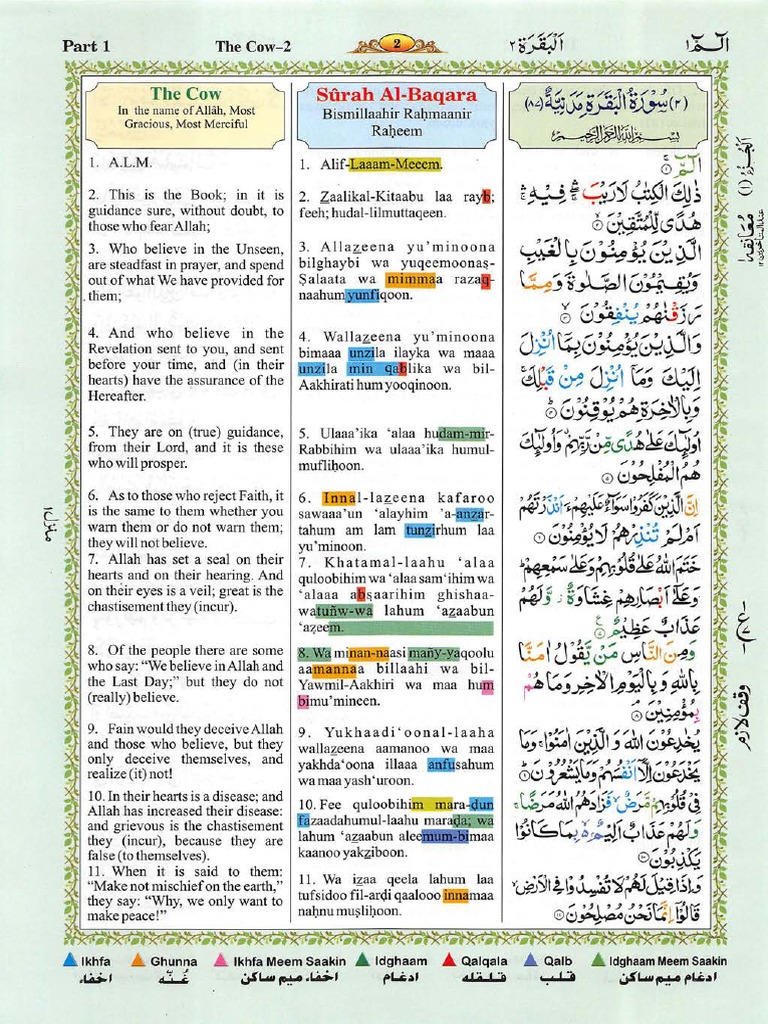 Part 1
The Cow–2
2
اَلْبَقَرَة ٢
الٓمّٓ ١
The Cow
In the name of Allâh, Most
Gracious, Most Merciful
1. A.L.M.
2. This is the Book; in it is
guidance sure, without doubt, to
those who fear Allah;
3. Who believe in the Unseen,
are steadfast in prayer, and spend
out of what We have provided for
them;
4. And who believe in the
Revelation sent to you, and sent
before your time, and (in their
hearts) have the assurance of the
Hereafter.
5. They are on (true) guidance,
from their Lord, and it is these
who will prosper.
6. As to those who reject Faith, it
is the same to them whether you
warn them or do not warn them;
they will not believe.
7. Allah has set a seal on their
hearts and on their hearing. And
on their eyes is a veil; great is the
chastisement they (incur).
8. Of the people there are some
who say: “We believe in Allah and
the Last Day;” but they do not
(really) believe.
9. Fain would they deceive Allah
and those who believe, but they
only deceive themselves, and
realize (it) not!
10. In their hearts is a disease; and
Allah has increased their disease:
and grievous is the chastisement
they (incur), because they are
false (to themselves).
11. When it is said to them:
“Make not mischief on the earth,”
they say: “Why, we only want to
make peace!”
Sûrah Al-Baqara
Bismillaahir Raḥmaanir
Raḥeem
1. Alif-Laaam-Meeem.
2. Z̲aalikal-Kitaabu laa rayb;
feeh; hudal-lilmuttaqeen.
3. Allaz̲eena yu’minoona
bilghaybi wa yuqeemoonaṣ-
Ṣalaata wa mimmaa razaq-
naahum yunfiqoon.
4. Wallaz̲eena yu’minoona
bimaaa unzila ilayka wa maaa
unzila min qablika wa bil-
Aakhirati hum yooqinoon.
5. Ulaaa’ika ‘alaa hudam-mir-
Rabbihim wa ulaaa’ika humul-
mufliḥoon.
6. Innal-laz̲eena kafaroo
sawaaa’un ‘alayhim ’a-anz̲ar-
tahum am lam tunz̲irhum laa
yu’minoon.
7. Khatamal-laahu ‘alaa
quloobihim wa ‘alaa sam‘ihim wa
‘alaaa abṣaarihim ghishaa-
watuñw-wa lahum ‘az̲aabun
‘aẓeem.
8. Wa minan-naasi mañy-yaqoolu
aamannaa billaahi wa bil-
Yawmil-Aakhiri wa maa hum
bimu’mineen.
9. Yukhaadi‘oonal-laaha
wallaz̲eena aamanoo wa maa
yakhda‘oona illaaa anfusahum
wa maa yash‘uroon.
10. Fee quloobihim maraḍun
fazaadahumul-laahu maraḍa; wa
lahum ‘az̲aabun aleemum-bimaa
kaanoo yakz̲iboon.
11. Wa iz̲aa qeela lahum laa
tufsidoo fil-arḍi qaalooo innamaa
naḥnu muṣliḥoon.
(٢) سُوْرَةُ الْبَقَرَةِ مَدَنِيَّةٌ (٨٧)
بِسْمِ اللّٰهِ الرَّحْمٰنِ الرَّحِيْمِ
الٓمّٓ ۚ ١
ذٰلِكَ الْكِتٰبُ لَا رَيْبَ ۛ فِيْهِ ۛ
هُدًى لِّلْمُتَّقِيْنَ ٢
الَّذِيْنَ يُؤْمِنُوْنَ بِالْغَيْبِ
وَيُقِيْمُوْنَ الصَّلٰوةَ وَمِمَّا
رَزَقْنٰهُمْ يُنْفِقُوْنَ ٣
وَالَّذِيْنَ يُؤْمِنُوْنَ بِمَآ اُنْزِلَ
اِلَيْكَ وَمَآ اُنْزِلَ مِنْ قَبْلِكَ ۚ
وَبِالْاٰخِرَةِ هُمْ يُوْقِنُوْنَ ٤
اُولٰٓئِكَ عَلٰى هُدًى مِّنْ رَّبِّهِمْ ۗ وَاُولٰٓئِكَ
هُمُ الْمُفْلِحُوْنَ ٥
اِنَّ الَّذِيْنَ كَفَرُوْا سَوَآءٌ عَلَيْهِمْ ءَاَنْذَرْتَهُمْ
اَمْ لَمْ تُنْذِرْهُمْ لَا يُؤْمِنُوْنَ ٦
خَتَمَ اللّٰهُ عَلٰى قُلُوْبِهِمْ وَعَلٰى سَمْعِهِمْ ۗ
وَعَلٰٓى اَبْصَارِهِمْ غِشَاوَةٌ ۫ وَّلَهُمْ
عَذَابٌ عَظِيْمٌ ٧
وَمِنَ النَّاسِ مَنْ يَّقُوْلُ اٰمَنَّا
بِاللّٰهِ وَبِالْيَوْمِ الْاٰخِرِ وَمَا هُمْ
بِمُؤْمِنِيْنَ ٨
يُخٰدِعُوْنَ اللّٰهَ وَالَّذِيْنَ اٰمَنُوْا ۚ وَمَا
يَخْدَعُوْنَ اِلَّآ اَنْفُسَهُمْ وَمَا يَشْعُرُوْنَ ٩
فِيْ قُلُوْبِهِمْ مَّرَضٌ ۙ فَزَادَهُمُ اللّٰهُ مَرَضًا ۚ
وَلَهُمْ عَذَابٌ اَلِيْمٌۢ ۙ بِمَا كَانُوْا
يَكْذِبُوْنَ ١٠
وَاِذَا قِيْلَ لَهُمْ لَا تُفْسِدُوْا فِى الْاَرْضِ ۙ
قَالُوْٓا اِنَّمَا نَحْنُ مُصْلِحُوْنَ ١١
اَلْجُزْءُ (١)
معانقة ١
وقف لازم
منزل ١
Ikhfa
Ghunna
Ikhfa Meem Saakin
Idghaam
Qalqala
Qalb
Idghaam Meem Saakin
اخفاء
غُنّه
اخفاء میم ساکن
ادغام
قلقله
قلب
ادغام میم ساکن